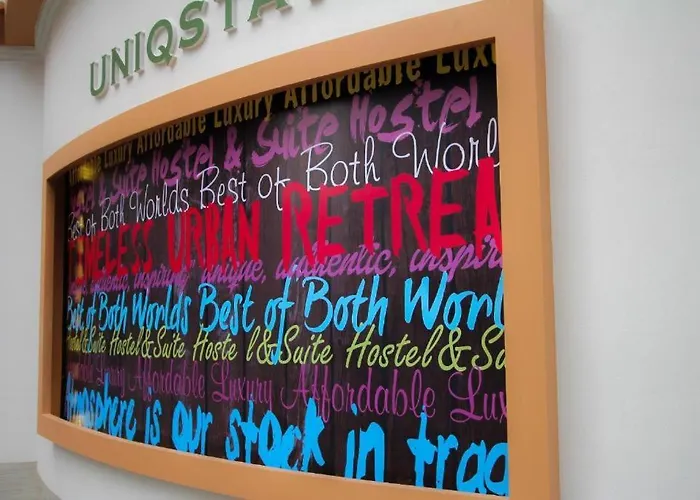 UNIQSTA
Affordable Luxury Affordable Luxury Affordable Lux
& Suite Hostel & Suite Hostel
Best of Both Worlds Best of Both Worl
MELESS URBAN RETREA
authentic, inspiring unique, authentic, inspirin
But of Both Worlds Best of Both Worl
Hostel&Suite Hostel&Suite Hostel&Su
Luxury Affordable Luxury Affordable Lux
Atmosphere is our stock in trad